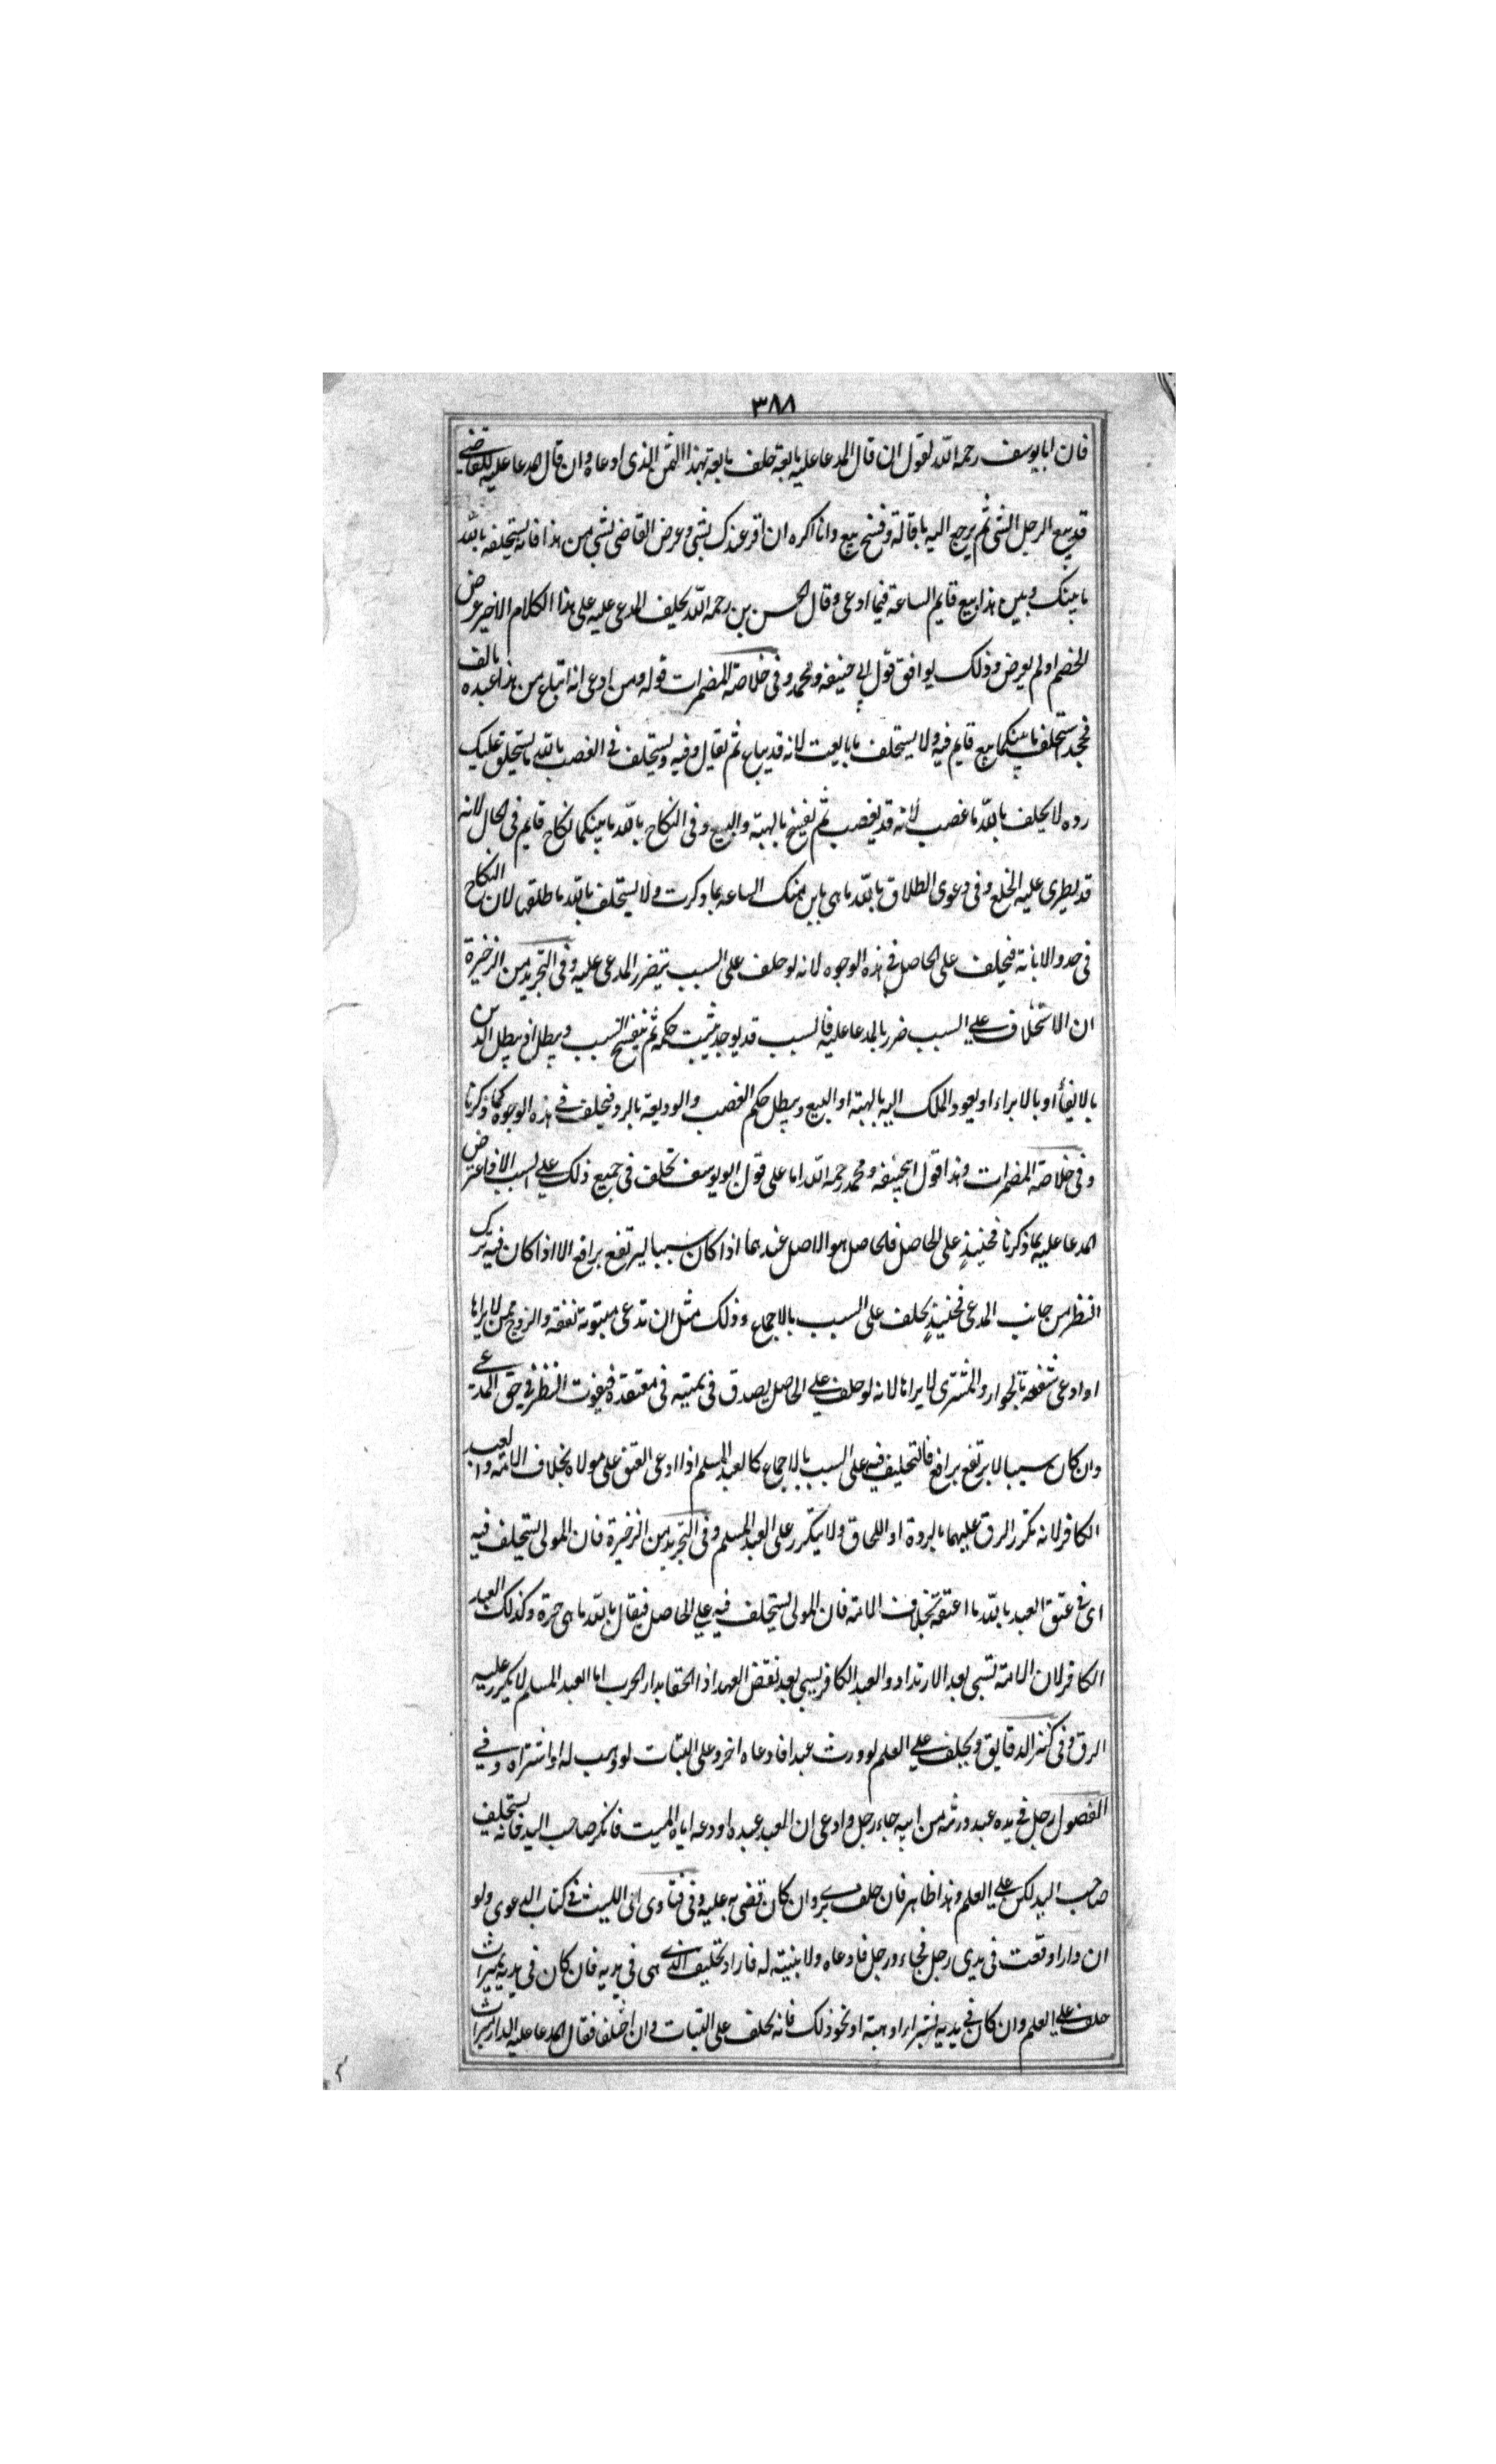 ٣٨٨
فان ابا يوسف رحمه الله يقول ان قال المدعا عليه ما بعته حلف ما بعته بهذا الثمن الذى ادعاه وان قال المدعا عليه للقاضى
قد يبيع الرجل الشى ثم يرجع اليه باقالة وفسخ بيع وانا اكره ان اقر عندك بشى وعرض القاضى بشى من هذا فانه يستحلفه بالله
ما بينك وبين هذا بيع قايم الساعة فيما ادعى وقال الحسن بن رحمه الله يحلف المدعى عليه على هذا الكلام الاخير عرض
الخصم او لم يعرض وذلك يوافق قول ابى حنيفه ومحمد وفى خلاصة المضمرات قوله ومن ادعى انه ابتاع من هذا عبده بالف
فجحد استحلف ما بينكما بيع قايم فيه ولا يستحلف ما بايعت لانه قد يباع ثم يقال وفيه ويستحلف فى الغصب بالله ما يستحق عليك
رده لا يحلف بالله ما غصب لانه قد يغصب ثم يفسخ بالهبة والبيع وفى النكاح بالله ما بينكما نكاح قايم فى الحال لانه
قد يطرى عليه الخلع وفى دعوى الطلاق بالله ما هى باين منك الساعه بما ذكرت ولا يستحلف بالله ما طلقها لان النكاح
فى حدو الابانة فيحلف على الحاصل فى هذه الوجوه لانه لو حلف على السبب يتضرر المدعى عليه وفى التجريد من الذخيرة
ان الاستحلاف على السبب ضرر بالمدعا عليه فالسبب قد يوجد يثبت حكمه ثم ينفسخ السبب ويبطل اذ يبطل الدين
بالايفأ او بالابراء او يعود الملك اليه بالهبة او البيع ويبطل حكم الغصب والوديعة بالرد فيحلف فى هذه الوجوه كما ذكرنا
وفى خلاصة المضمرات وهذا قول ابيحنيفه ومحمد رحمه الله اما على قول ابو يوسف يحلف فى جميع ذلك على السبب الا اذا عترض
المدعا عليه بما ذكرنا فحينيذٍ على الحاصل فالحاصل هو الاصل عندهما اذا كان سببا يرتفع برافع الا اذا كان فيه ترك
النظر من جانب المدعى فحينيذٍ يحلف على السبب بالاجماع وذلك مثل ان تدعى مبتوتة نفقة والزوج ممن لا يراها
او ادعى شفعة بالجوار والمشترى لا يراها لانه لو حلف على الحاصل يصدق فى يمينه فى معتقده فيفوت النظر فى حق المدعى
وان كان سببا لا يرتفع برافع فالتحليف فيه على السبب بالاجماع كالعبد المسلم اذا ادعى العتق على مولاه بخلاف الامة والعبد
الكافر لانه تكرر الرق عليهما بالردة او اللحاق ولا يتكرر على العبد المسلم وفى التجريد من الذخيرة فان المولى يستحلف فيه
اى فى عتق العبد بالله ما اعتقه بخلاف الامة فان المولى يستحلف فيه على الحاصل فيقال بالله ما هى حرة وكذلك العبد
الكافر لان الامة تسبى بعد الارتداد والعبد الكافر يسبى بعد نقض العهد اذا لحقا بدار الحرب اما العبد المسلم لا يكرر عليه
الرق وفى كنز الدقايق ويحلف على العلم لو ورث عبدا فادعاه اخر وعلى البتات لو وهب له او اشتراه وفى
الفصول رجل فى يده عبد ورثه من ابيه جاء رجل وادعى ان العبد عبده اودعه اياه الميت فانكر صاحب اليد فانه يستحلف
صاحب اليد لكن على العلم وهذا ظاهر فان حلف برى وان كان قضى به عليه وفى فتاوى ابى الليث فى كتاب الدعوى ولو
ان دارا وقعت فى يدى رجل فجاء ورجل فادعاه ولا بينة له فاراد تحليف الذى هى فى يديه فان كان فى يديه بميراث
حلف على العلم وان كان فى يديه بشراء او هبة او نحو ذلك فانه يحلف على البتات وان اختلفا فقال المدعا عليه الدار ميراث